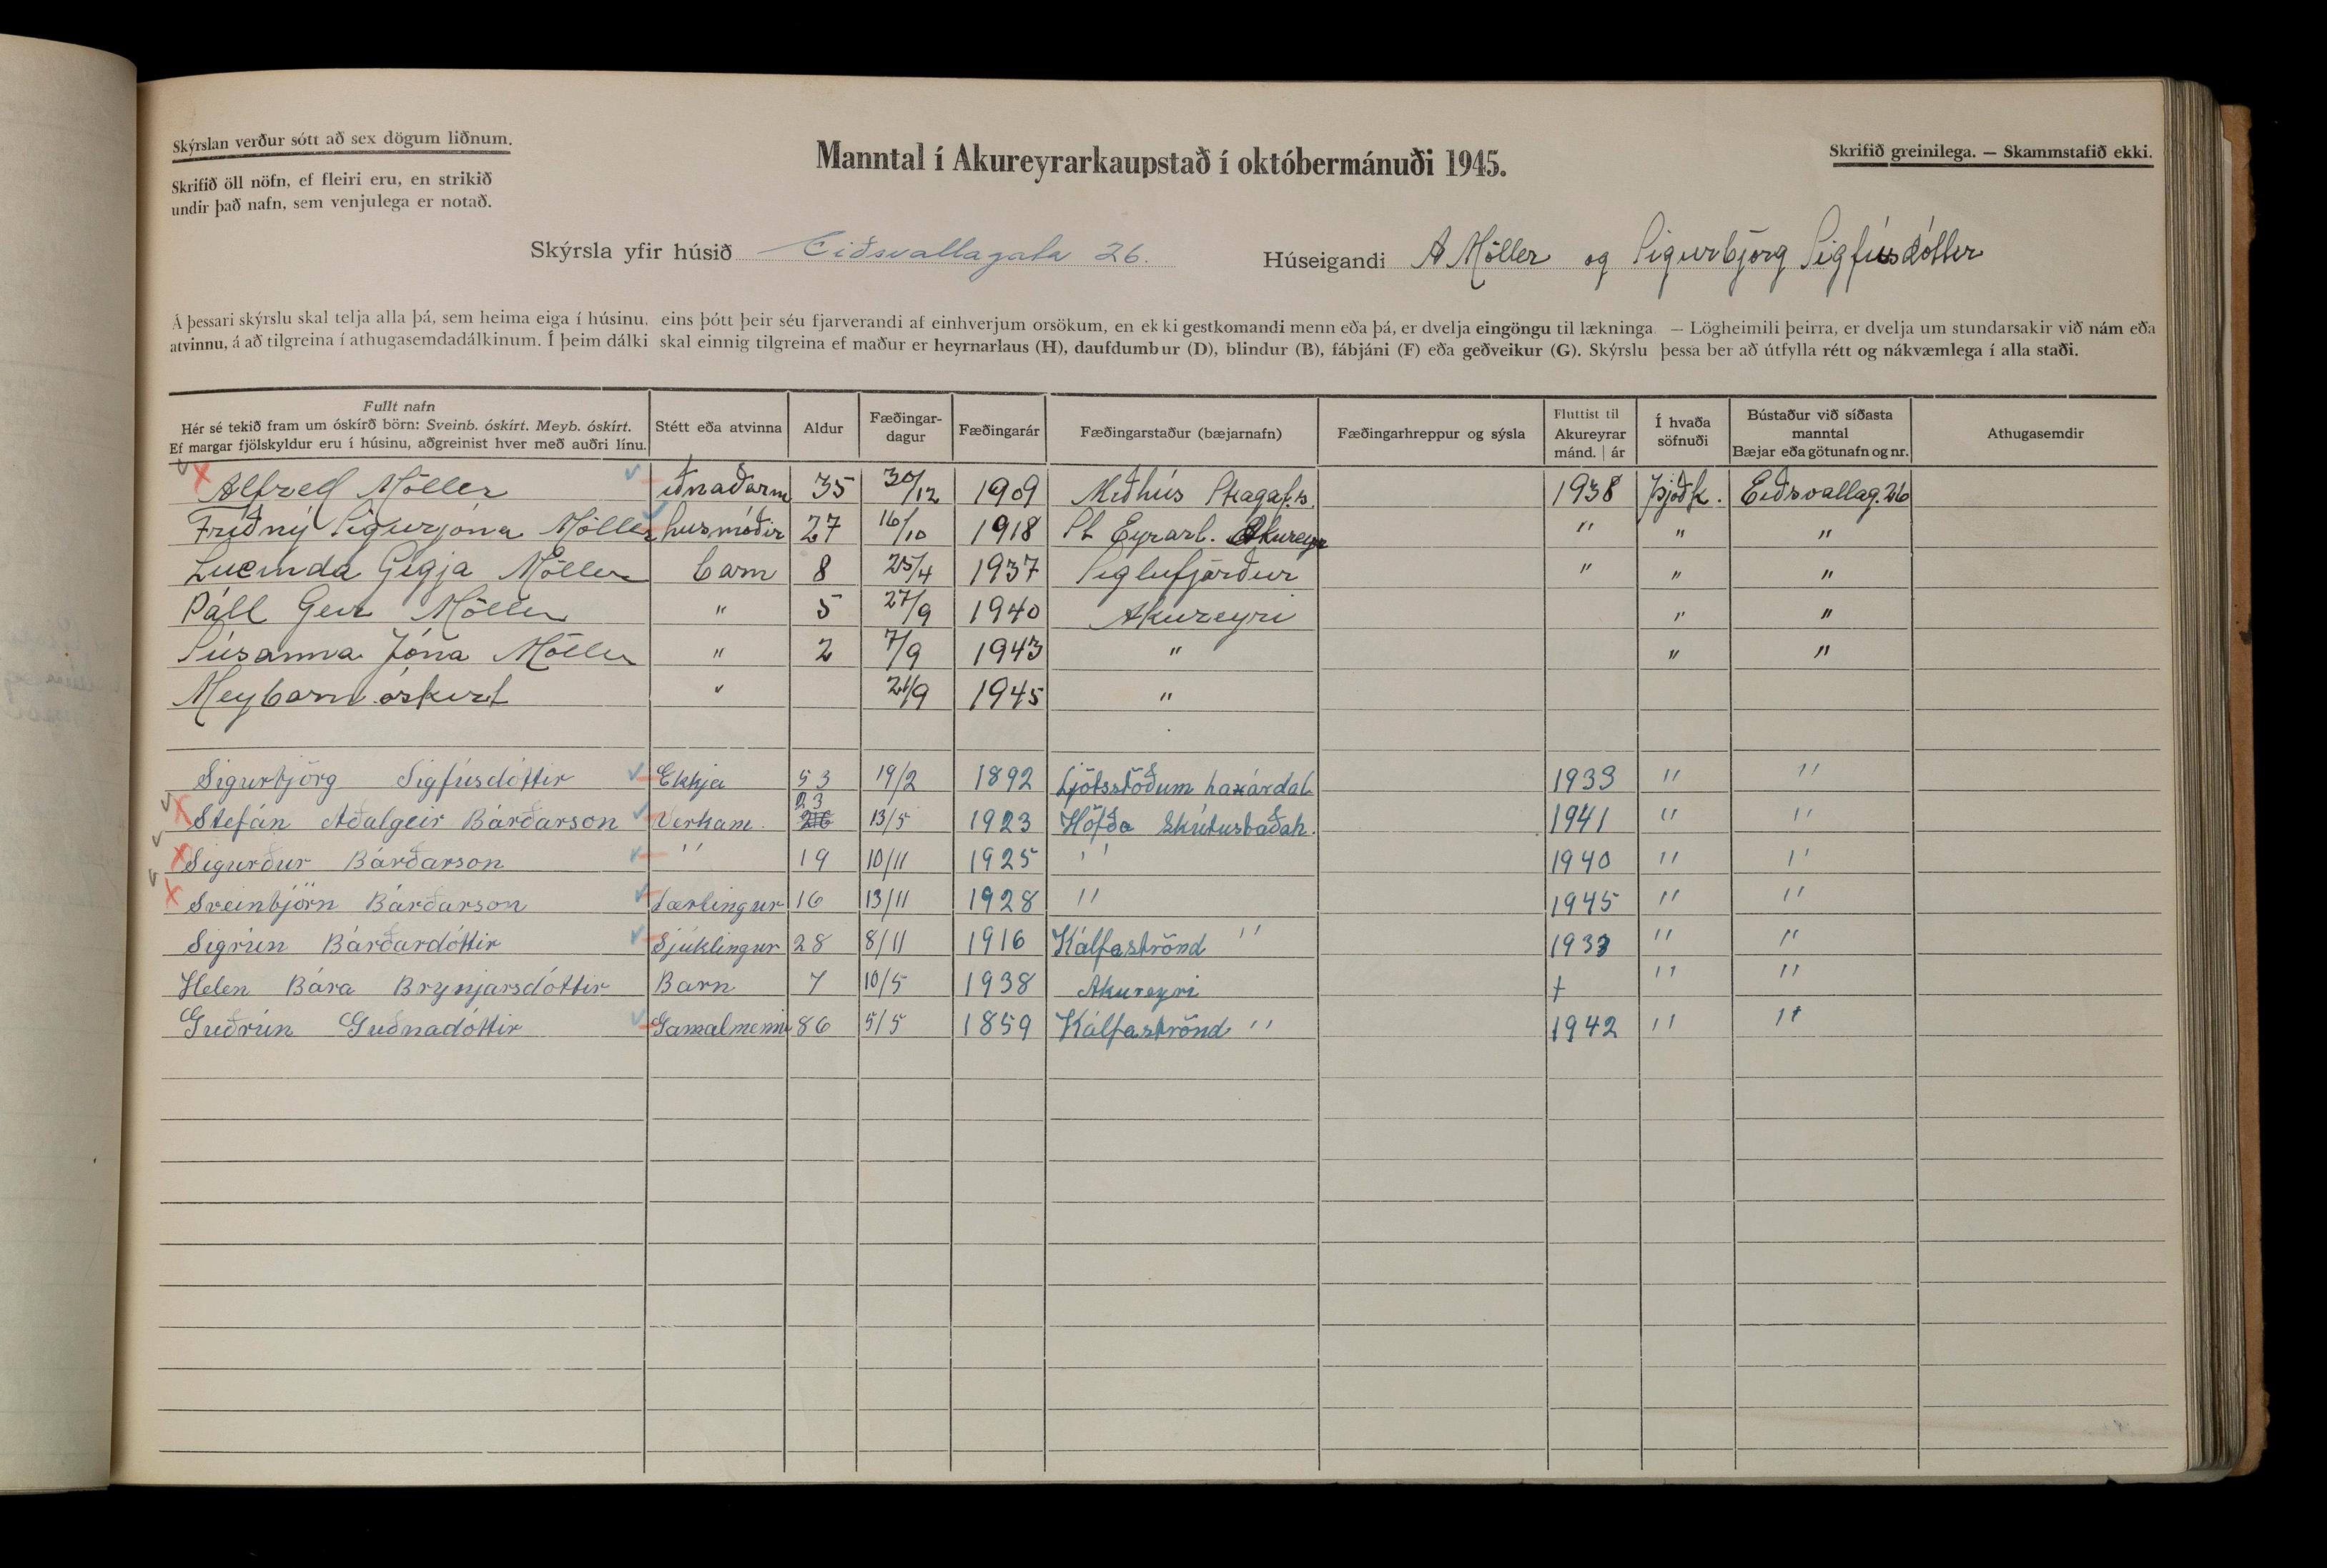 Skýrslan verður sótt að sex dögum liðnum.
Skrifið öll nöfn, ef fleiri eru, en strikið
undir það nafn, sem venjulega er notað.
Manntal í Akureyrarkaupstað í októbermánuði 1945.
Skrifið greinilega. — Skammstafið ekki.
Skýrsla yfir húsið Eiðsvallagata 26.
Húseigandi A Möller og Sigurbjörg Sigfúsdóttir
Á þessari skýrslu skal telja alla þá, sem heima eiga í húsinu, eins þótt þeir séu fjarverandi af einhverjum orsökum, en ekki gestkomandi menn eða þá, er dvelja eingöngu til lækninga — Lögheimili þeirra, er dvelja um stundarsakir við nám eða
atvinnu, á að tilgreina í athugasemdadálkinum. Í þeim dálki skal einnig tilgreina ef maður er heyrnarlaus (H), daufdumbur (D), blindur (B), fábjáni (F) eða geðveikur (G). Skýrslu þessa ber að útfylla rétt og nákvæmlega í alla staði.
Fullt nafn
Hér sé tekið fram um óskírð börn: Sveinb. óskírt. Meyb. óskírt.
Ef margar fjölskyldur eru í húsinu, aðgreinist hver með auðri línu.
Stétt eða atvinna
Aldur
Fæðingar-
dagur
Fæðingarár
Fæðingarstaður (bæjarnafn)
Fæðingarhreppur og sýsla
Fluttist til
Akureyrar
mánd. | ár
Í hvaða
söfnuði
Bústaður við síðasta
manntal
Bæjar eða götunafn og nr.
Athugasemdir
Alfreð Möller iðnaðarm 35 30/12 1909 Miðhús Skagafs. 1938 Þjóðk. Eiðsvallag. 26
Friðný Sigurjóna Möller húsmóðir 27 16/10 1918 St Eyrarl. Akureyr " " "
Lucinda Gígja Möller barn 8 25/4 1937 Siglufjörður " " "
Páll Geir Möller " 5 27/9 1940 Akureyri " "
Súsanna Jóna Möller " 2 7/9 1943 " " "
Meybarn óskírt " 21/9 1945 "
Sigurbjörg Sigfúsdóttir Ekkja 53 19/2 1892 Ljótsstöðum haxárdal 1933 " "
Stefán Aðalgeir Bárðarson Verkam. 23 13/5 1923 Höfða Skútustaðah. 1941 " "
Sigurður Bárðarson " 19 10/11 1925 " 1940 " "
Sveinbjörn Bárðarson Lærlingur 16 13/11 1928 " 1945 " "
Sigrún Bárðardóttir Sjúklingur 28 8/11 1916 Kálfaströnd " 1933 " "
Helen Bára Brynjarsdóttir Barn 7 10/5 1938 Akureyri + " "
Guðrún Guðnadóttir Gamalmenni 86 5/5 1859 Kálfaströnd " 1942 " "